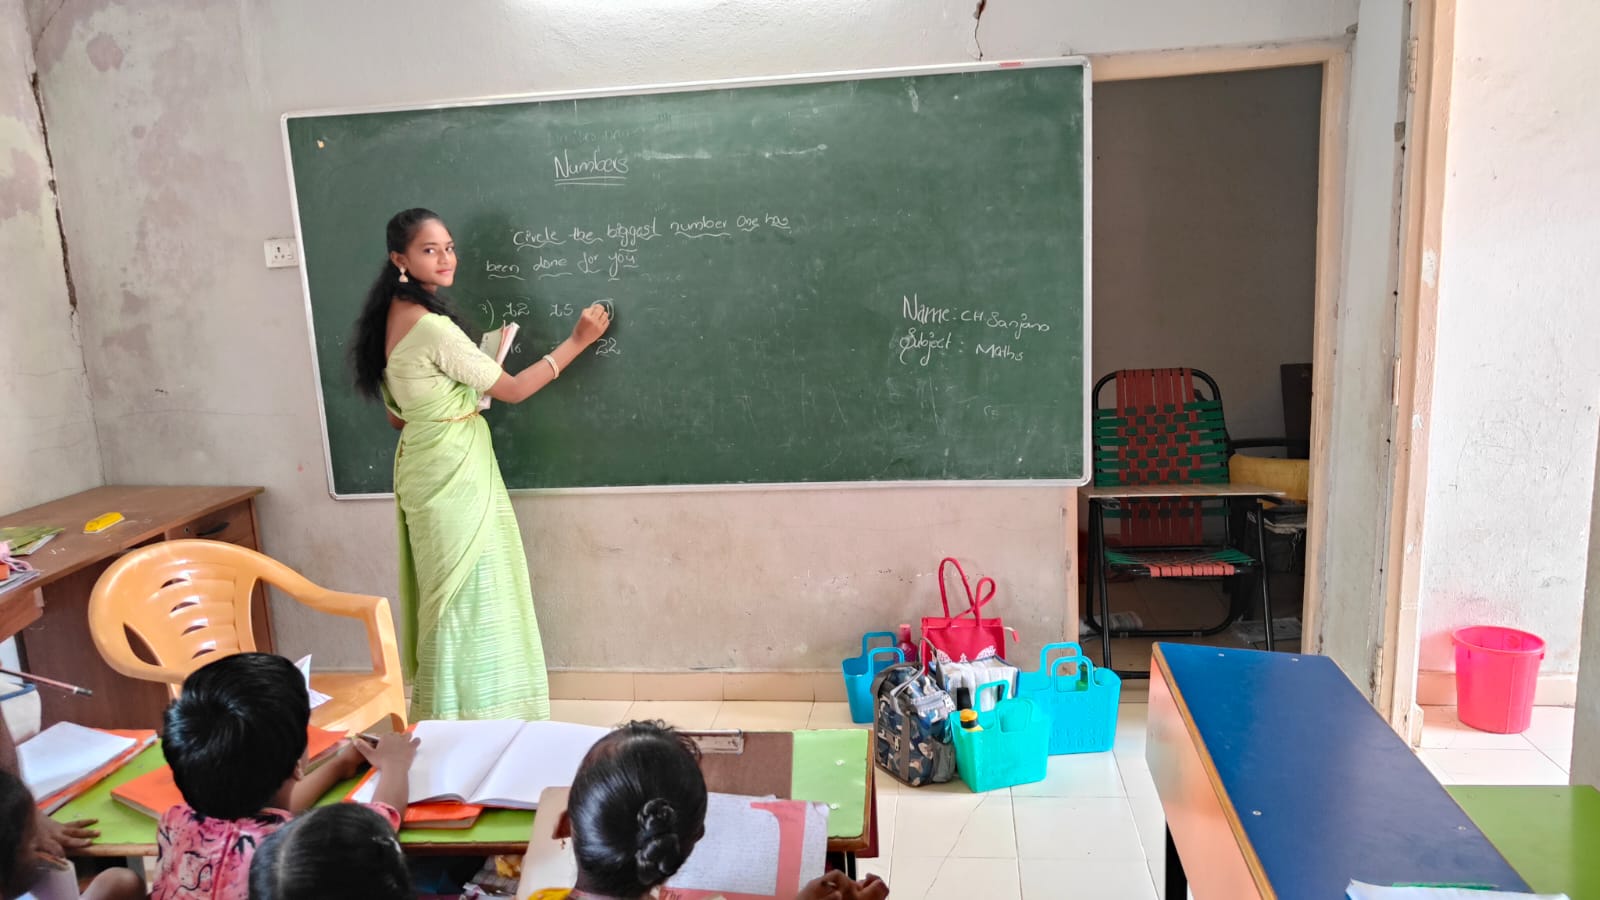 Numbers
Circle the biggest number One has
been done for you
12 15
16 22
Name: CH. Sanjana
Subject: Maths